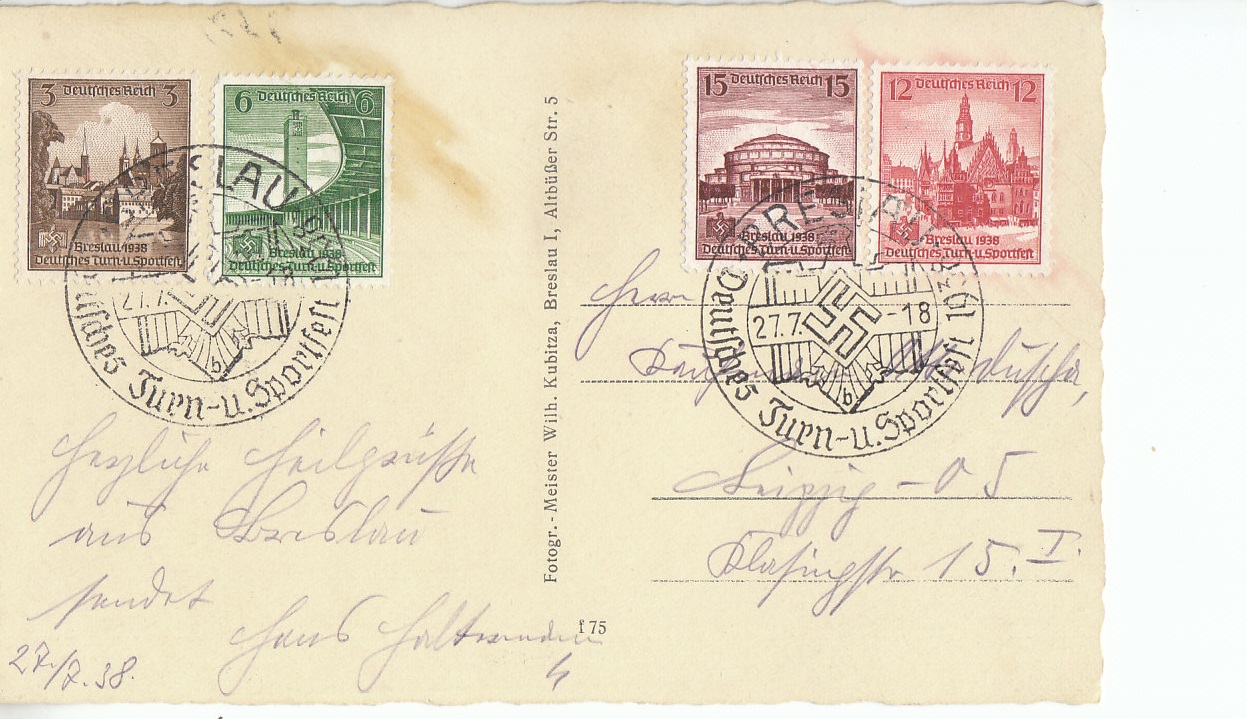 3 Deutsches Reich 3
Breslau 1938
Deutsches Turn-u.Sportfest
6 Deutsches Reich 6
Breslau 1938
Deutsches Turn-u.Sportfest
BRESLAU
27.7.
b
Deutsches Turn-u.Sportfest
Herzliche Heilgrüsse
aus Breslau
sendet
Hans
27./7.38.
Fotogr.-Meister Wilh. Kubitza, Breslau I, Altbüßer Str. 5
f 75
15 Deutsches Reich 15
Breslau 1938
Deutsches Turn-u.Sportfest
12 Deutsches Reich 12
Breslau 1938
Deutsches Turn-u.Sportfest
BRESLAU
27.7. -18
b
Deutsches Turn-u.Sportfest
Herrn
Leipzig - O 5
15. I.